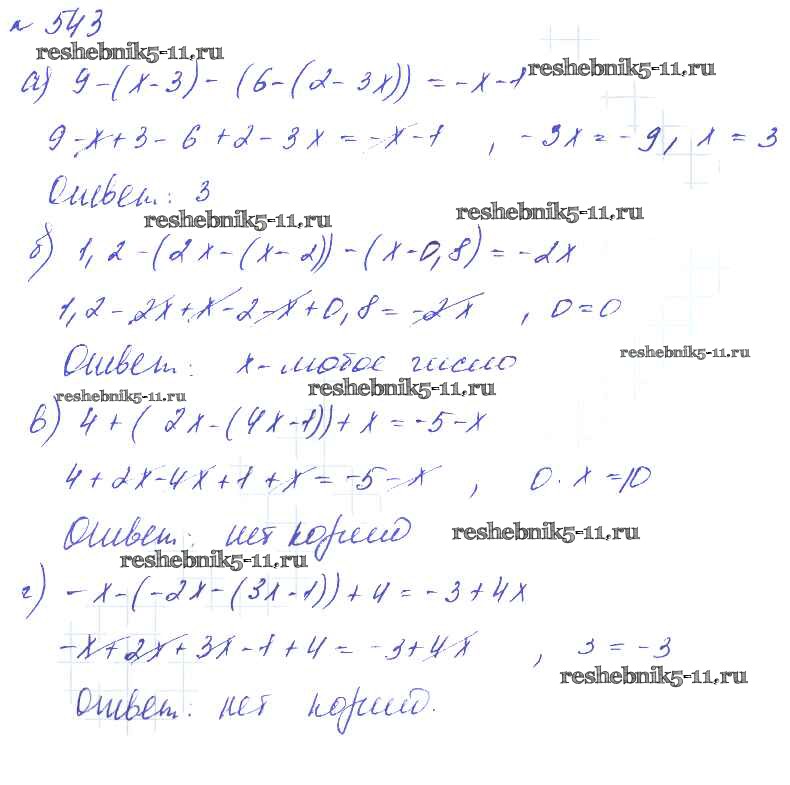 № 543
reshebnik5-11.ru
а) 9-(x-3)-(6-(2-3x))=-x-1
reshebnik5-11.ru
9-x+3-6+2-3x=-x-1 , -3x=-9, x=3
Ответ: 3
reshebnik5-11.ru
reshebnik5-11.ru
б) 1,2-(2x-(x-2))-(x-0,8)=-2x
1,2-2x+x-2-x+0,8=-2x , 0=0
reshebnik5-11.ru
Ответ: x-любое число
reshebnik5-11.ru
reshebnik5-11.ru
в) 4+(2x-(4x-1))+x=-5-x
4+2x-4x+1+x=-5-x , 0·x=10
Ответ: нет корней
reshebnik5-11.ru
reshebnik5-11.ru
г) -x-(-2x-(3x-1))+4=-3+4x
-x+2x+3x-1+4=-3+4x , 3=-3
reshebnik5-11.ru
Ответ: нет корней.